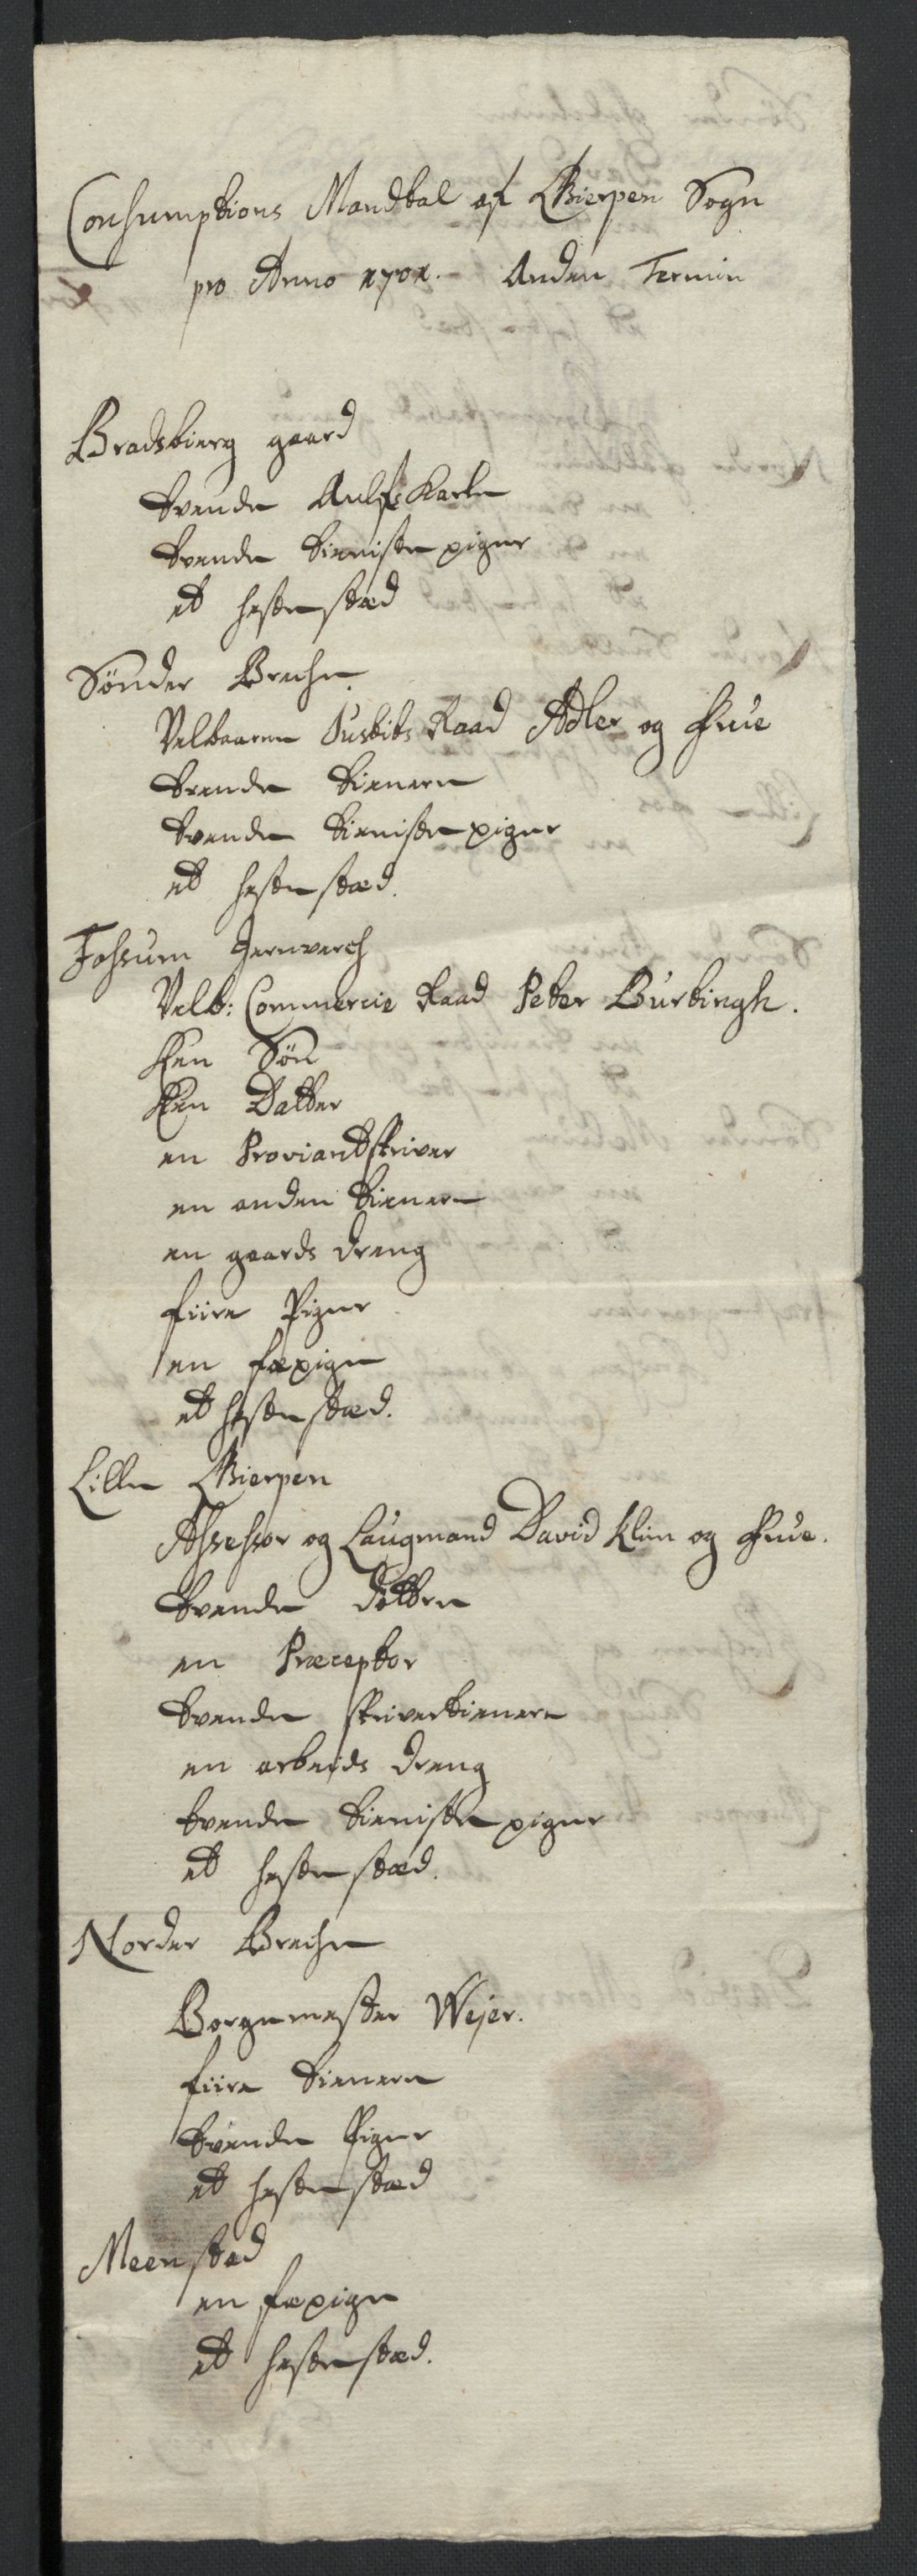 Consumptions Mandtal af Gierpen Sogn
pro Anno 1701. Anden Termin
Bradsbierg gaard
tvende Aufls Karle
tvende tieniste piger
et hestestæd
Sønder Brechе
Velbaarne Justits Raad Adler og Frue
tvende tienere
tvende tieniste piger
et hestestæd.
Fossum Jernverch
Velb: Commercie Raad Peter Bürtingh.
Een Søn
Een Datter
en Proviantskriver
en anden tienere
en gaards dreng
fiire Piger
en fæpige
et hestestæd.
Lille Gierpen
Assessor og Laugmand David Klim og Frue.
tvende døttre
en Præceptor
tvende skrivertienere
en arbeids dreng
tvende tieniste piger
et hestestæd.
Norder Breche
Borgemester Wejer.
fiire tienere
tvende Piger
et hestestæd
Meenstad
en fæpige
et hestestæd.